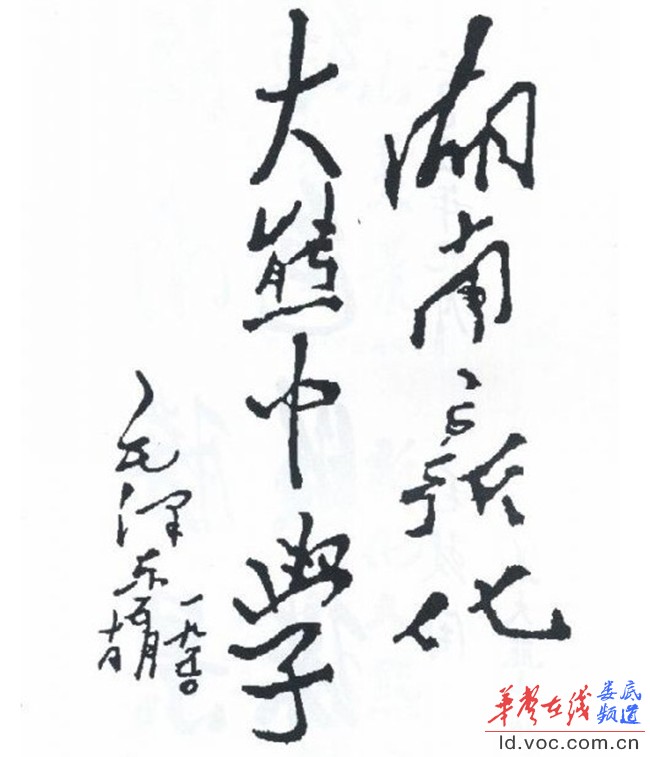 湖南新化
大熊中學
毛澤东
一九五〇
華聲在线
娄底
频道
ld.voc.com.cn